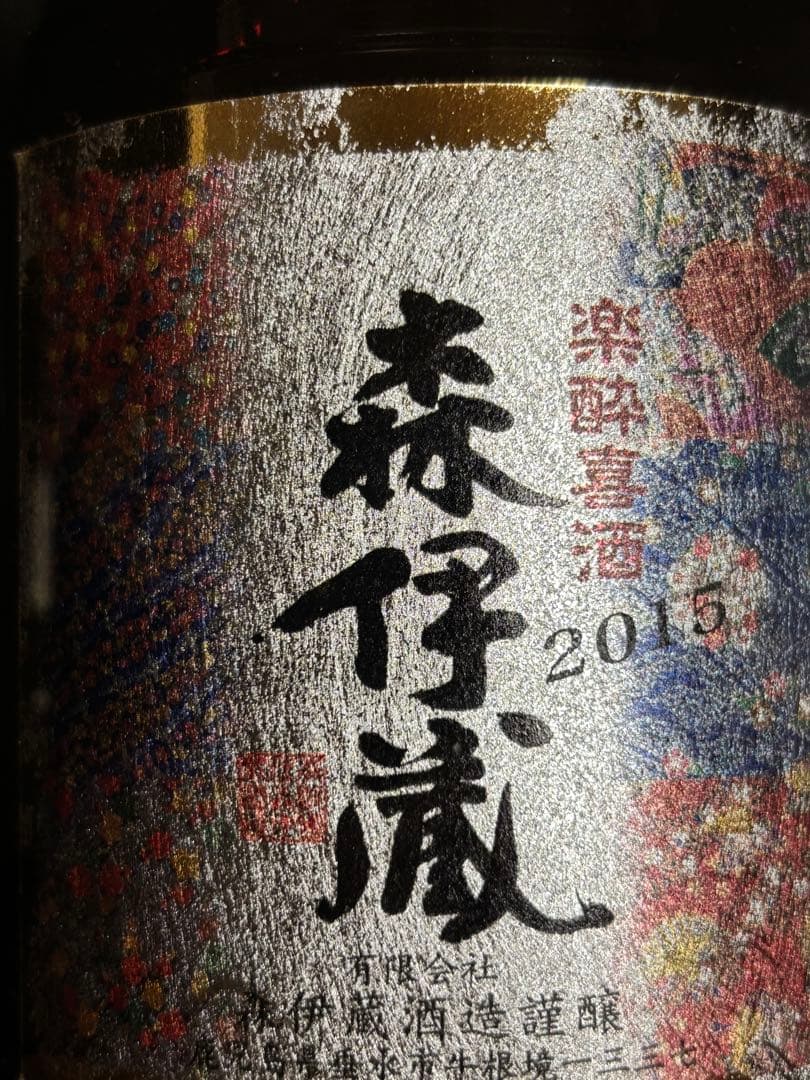 楽酔喜酒
2015
森伊蔵
有限会社
森伊蔵酒造謹醸
鹿児島県垂水市牛根境一三三七